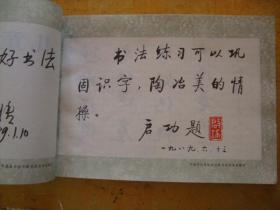 好书法
89.1.10
书法练习可以巩
固识字，陶冶美的情
操。
启功题
一九八九.六.十三